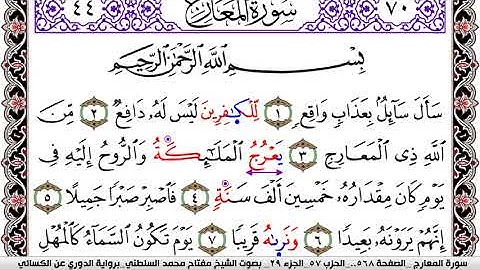 ٧٠ سُورَةُ المَعَارِجِ ٤٤
بِسْمِ اللَّهِ الرَّحْمَٰنِ الرَّحِيمِ
سَأَلَ سَآئِلُۢ بِعَذَابٍ وَاقِعٍ ١ لِّلْكَٰفِرِينَ لَيْسَ لَهُۥ دَافِعٌ ٢ مِّنَ
اللَّهِ ذِى الْمَعَارِجِ ٣ يَعْرُجُ الْمَلَٰٓئِكَةُ وَالرُّوحُ إِلَيْهِ فِى
يَوْمٍ كَانَ مِقْدَارُهُۥ خَمْسِينَ أَلْفَ سَنَةٍ ٤ فَاصْبِرْ صَبْرًا جَمِيلًا ٥
إِنَّهُمْ يَرَوْنَهُۥ بَعِيدًا ٦ وَنَرىٰهُ قَرِيبًا ٧ يَوْمَ تَكُونُ السَّمَآءُ كَالْمُهْلِ
سورة المعارج _الصفحة ٥٦٨.. الحزب ٥٧_ الجزء ٢٩_ بصوت الشيخ مفتاح محمد السلطني_ برواية الدوري عن الكسائي